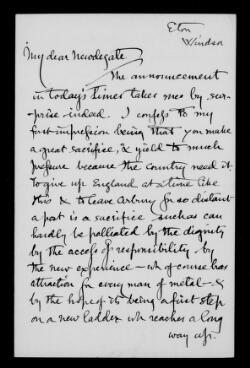 Eton
Windsor
My dear Newdegate,
The announcement
in today's Times takes me by sur-
prise indeed. I confess to my
first impression being that you make
a great sacrifice, & yield to much
pressure because the country need it.
To give up England at a time like
this & to leave Arbury for so distant
a post is a sacrifice such as can
hardly be palliated by the dignity
by the access of responsibility, by
the new experience – wh of course has
attraction for every man of metal – &
by the hope of its being a first step
on a new ladder wh reaches a long
way up.